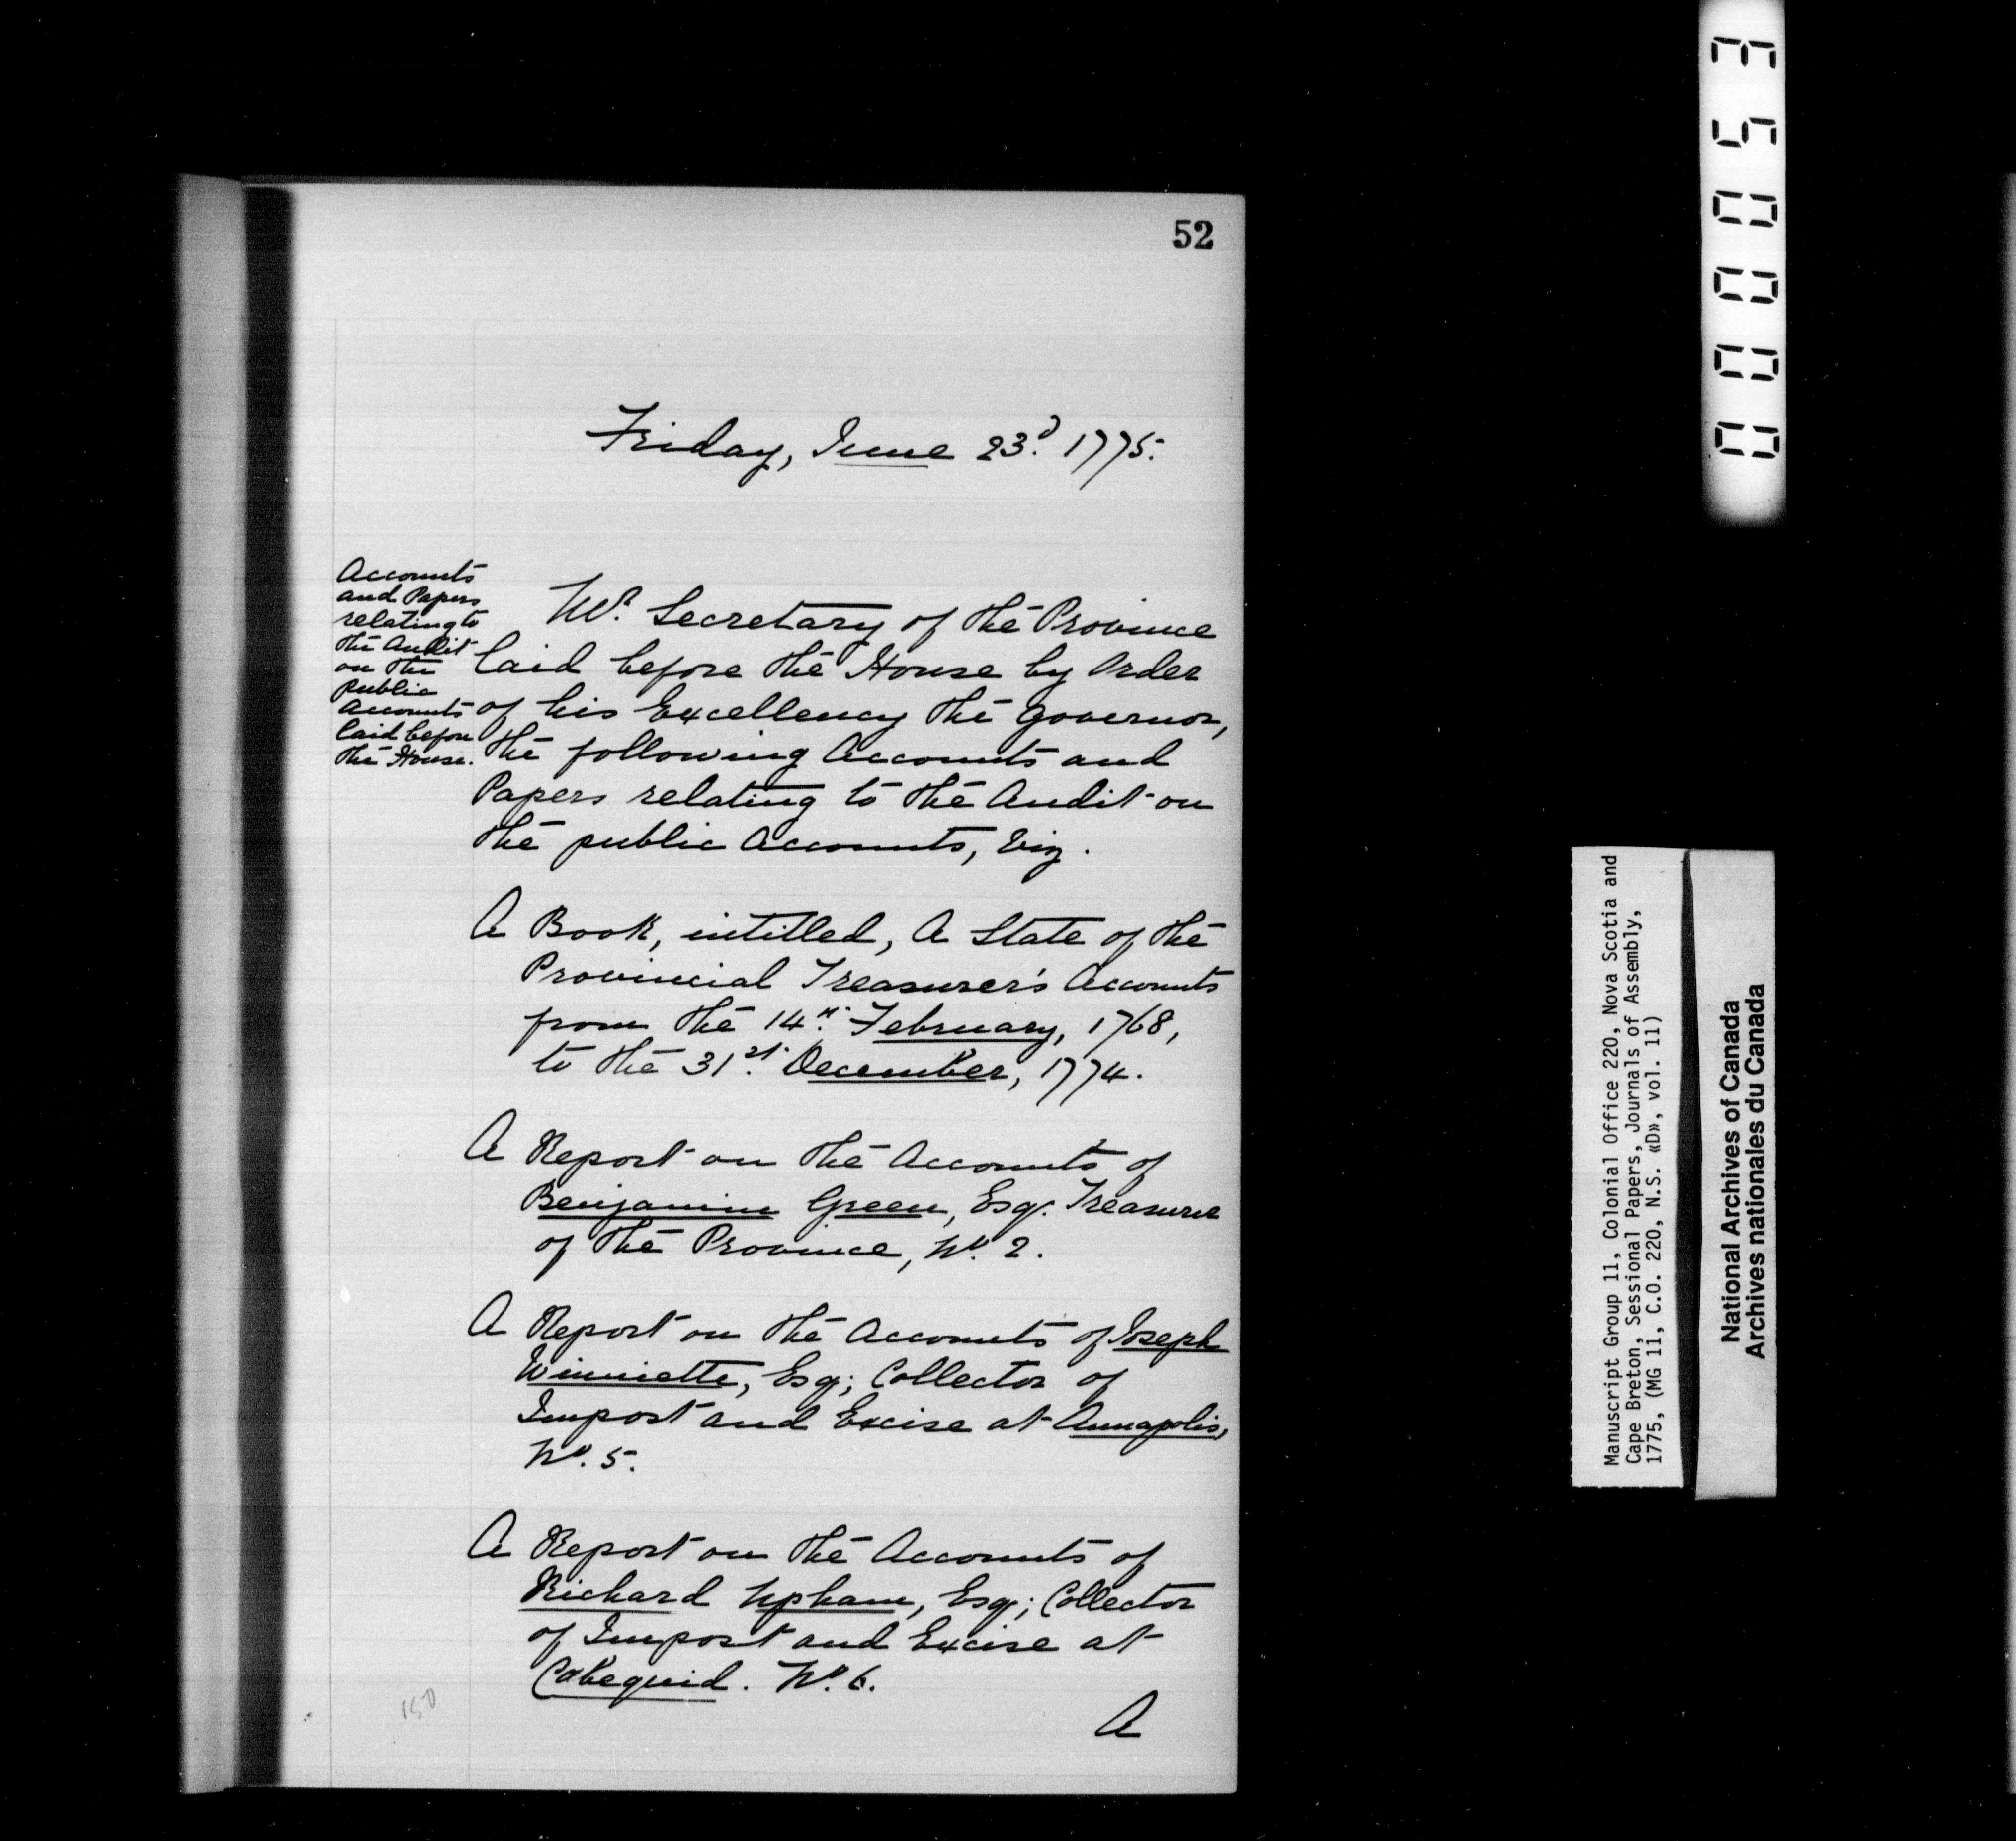 52
Friday, June 23.d 1775.
Accounts
and Papers
relating to
the Audit
on the
public
Accounts
laid before
the House.
Mr. Secretary of the Province
laid before the House by Order
of his Excellency the Governor,
the following Accounts and
Papers relating to the Audit on
the public Accounts, Viz.
A Book, intitled, A State of the
Provincial Treasurer's Accounts
from the 14.th February, 1768,
to the 31.st December, 1774.
A Report on the Accounts of
Benjamin Green, Esq. Treasurer
of the Province, No. 2.
A Report on the Accounts of Joseph
Winniette, Esq; Collector of
Impost and Excise at Annapolis,
No. 5.
A Report on the Accounts of
Richard Upham, Esq; Collector
of Impost and Excise at
Cobequid. No. 6.
A
150
000053
Manuscript Group 11, Colonial Office 220, Nova Scotia and
Cape Breton, Sessional Papers, Journals of Assembly,
1775, (MG 11, C.O. 220, N.S. «D», vol. 11)
National Archives of Canada
Archives nationales du Canada